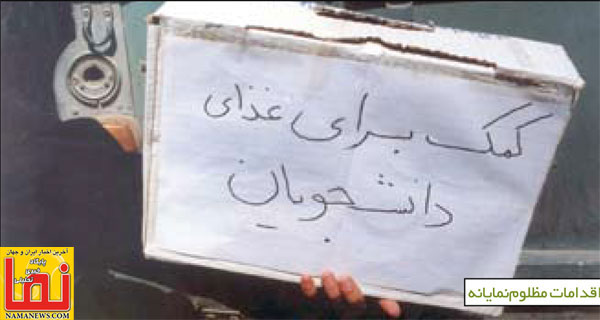 کمک برای غذای
دانشجویان
اقدامات مظلوم‌نمایانه
آخرین اخبار ایران و جهان
پایگاه
خبری
تحلیلی
نما
NAMANEWS.COM